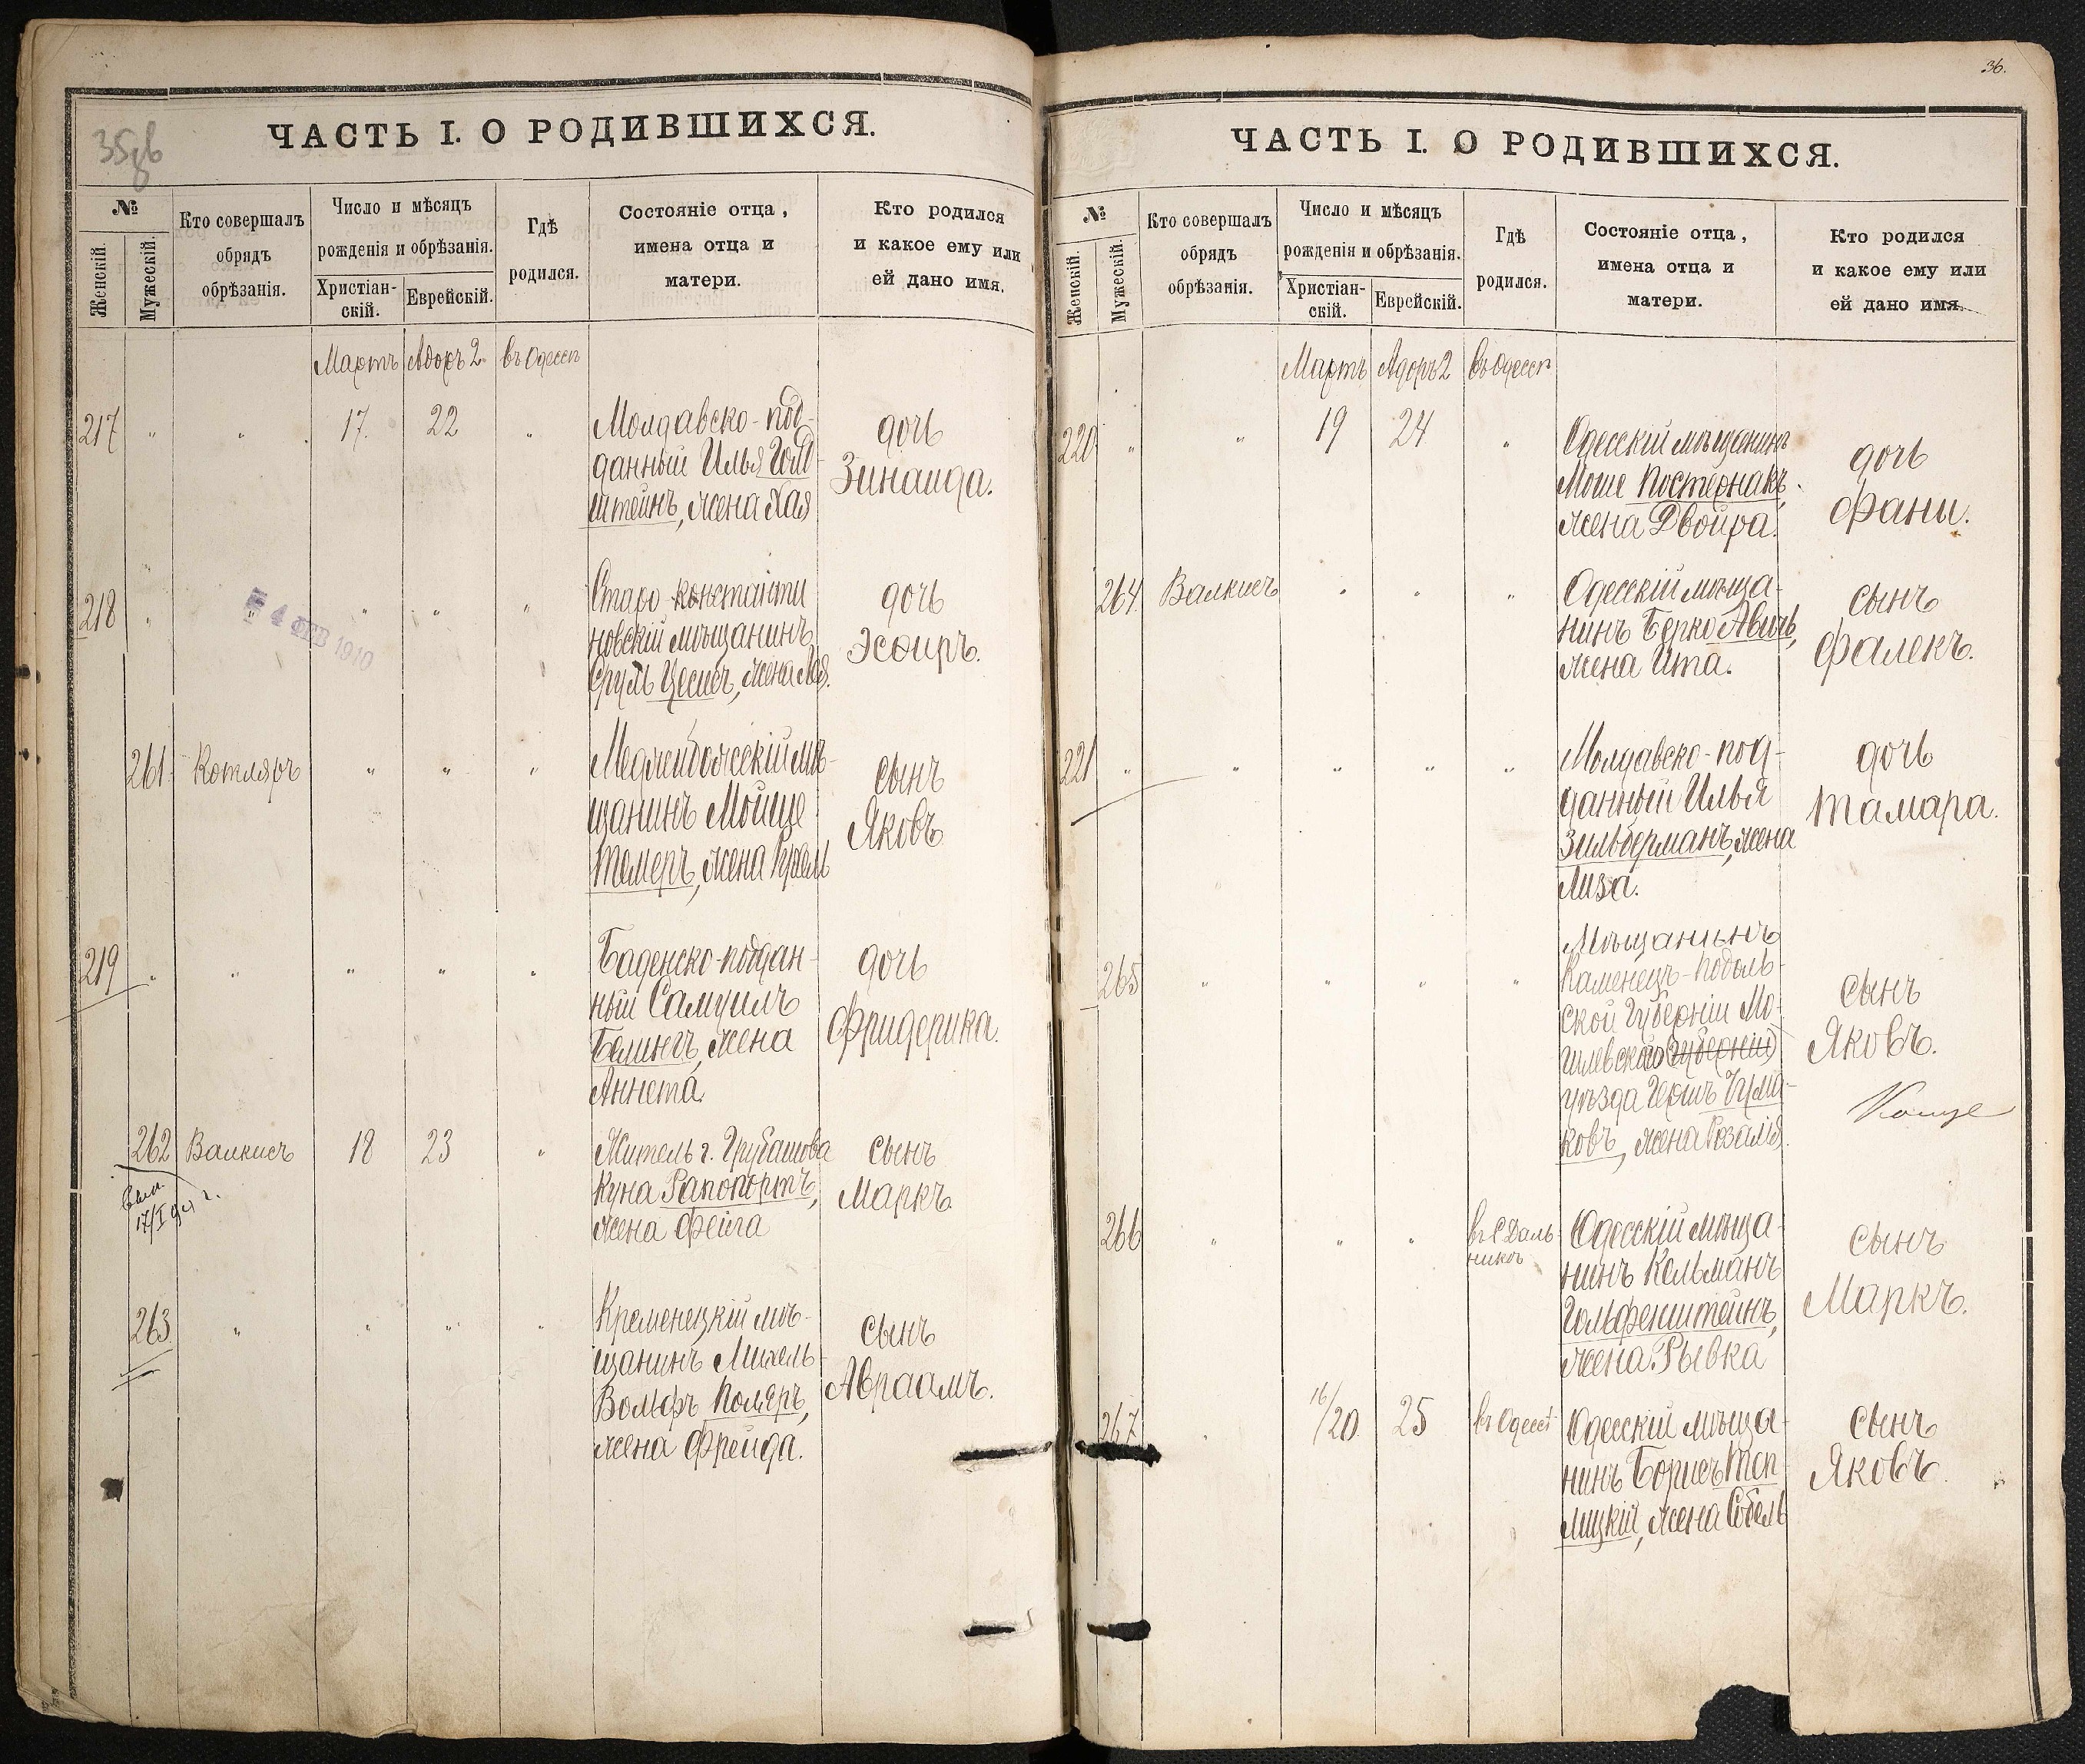 ЧАСТЬ I. О РОДИВШИХСЯ.
№
Женскій.
Мужескій.
Кто совершалъ
обрядъ
обрѣзанія.
Число и мѣсяцъ
рожденія и обрѣзанія.
Христіан-
скій.
Еврейскій.
Гдѣ
родился.
Состояніе отца,
имена отца и
матери.
Кто родился
и какое ему или
ей дано имя.
Мартъ Адоръ 2. въ Одессѣ
217 " " 17. 22 "
Молдавско-под-
данный Илья Гольд-
штейнъ, жена Хая
дочь
Зинаида.
218 " " " " "
4 ФЕВ 1910
Старо-константи
новскій мѣщанинъ
Сруль жена
дочь
Эсѳиръ.
261 Котляръ " " "
Меджибожскій мѣ-
щанинъ Мойше
Темеръ, жена
сынъ
Яковъ
219 " " " " "
Баденско-поддан-
ный Самуилъ
жена
Аннета
дочь
Фридерика.
262 Валкисъ 18 23 "
Житель г. Грубашова
Куна Рапопортъ,
жена Фейга
сынъ
Маркъ
263 " " " "
Кременецкій мѣ-
щанинъ Михель-
Вольфъ
жена Фрейда.
сынъ
Авраамъ.
36.
ЧАСТЬ I. О РОДИВШИХСЯ.
№
Женскій.
Мужескій.
Кто совершалъ
обрядъ
обрѣзанія.
Число и мѣсяцъ
рожденія и обрѣзанія.
Христіан-
скій.
Еврейскій.
Гдѣ
родился.
Состояніе отца,
имена отца и
матери.
Кто родился
и какое ему или
ей дано имя.
Мартъ Адоръ 2 въ Одессѣ
220 " " 19 24 "
Одесскій мѣщанинъ
Моше Постернакъ,
жена Двойра.
дочь
Фани.
264 Валкисъ " " "
Одесскій мѣща-
нинъ Берко
жена Ита.
сынъ
Фалекъ.
221 " " " " "
Молдавско-под-
данный Илья
Зильберманъ, жена
Лиза.
дочь
Тамара.
265 " " " "
Мѣщанинъ
Каменецъ-Подоль-
ской Губерніи Мо-
гилевскаго Губерніи
уѣзда Гершъ
ковъ, жена Розалія.
сынъ
Яковъ.
266 " " " въ С. Даль
никъ
Одесскій мѣща-
нинъ Кельманъ
Гольфенштейнъ,
жена Рывка
сынъ
Маркъ.
267 " 16/20. 25 въ Одессѣ
Одесскій мѣща-
нинъ Борисъ Теп-
лицкій, жена Собель
сынъ
Яковъ.